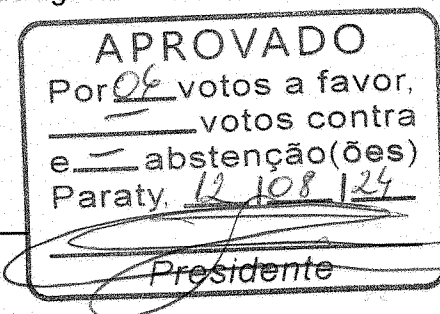 APROVADO
Por 06 votos a favor,
— votos contra
e — abstenção(ões)
Paraty, 12 / 08 / 24
Presidente